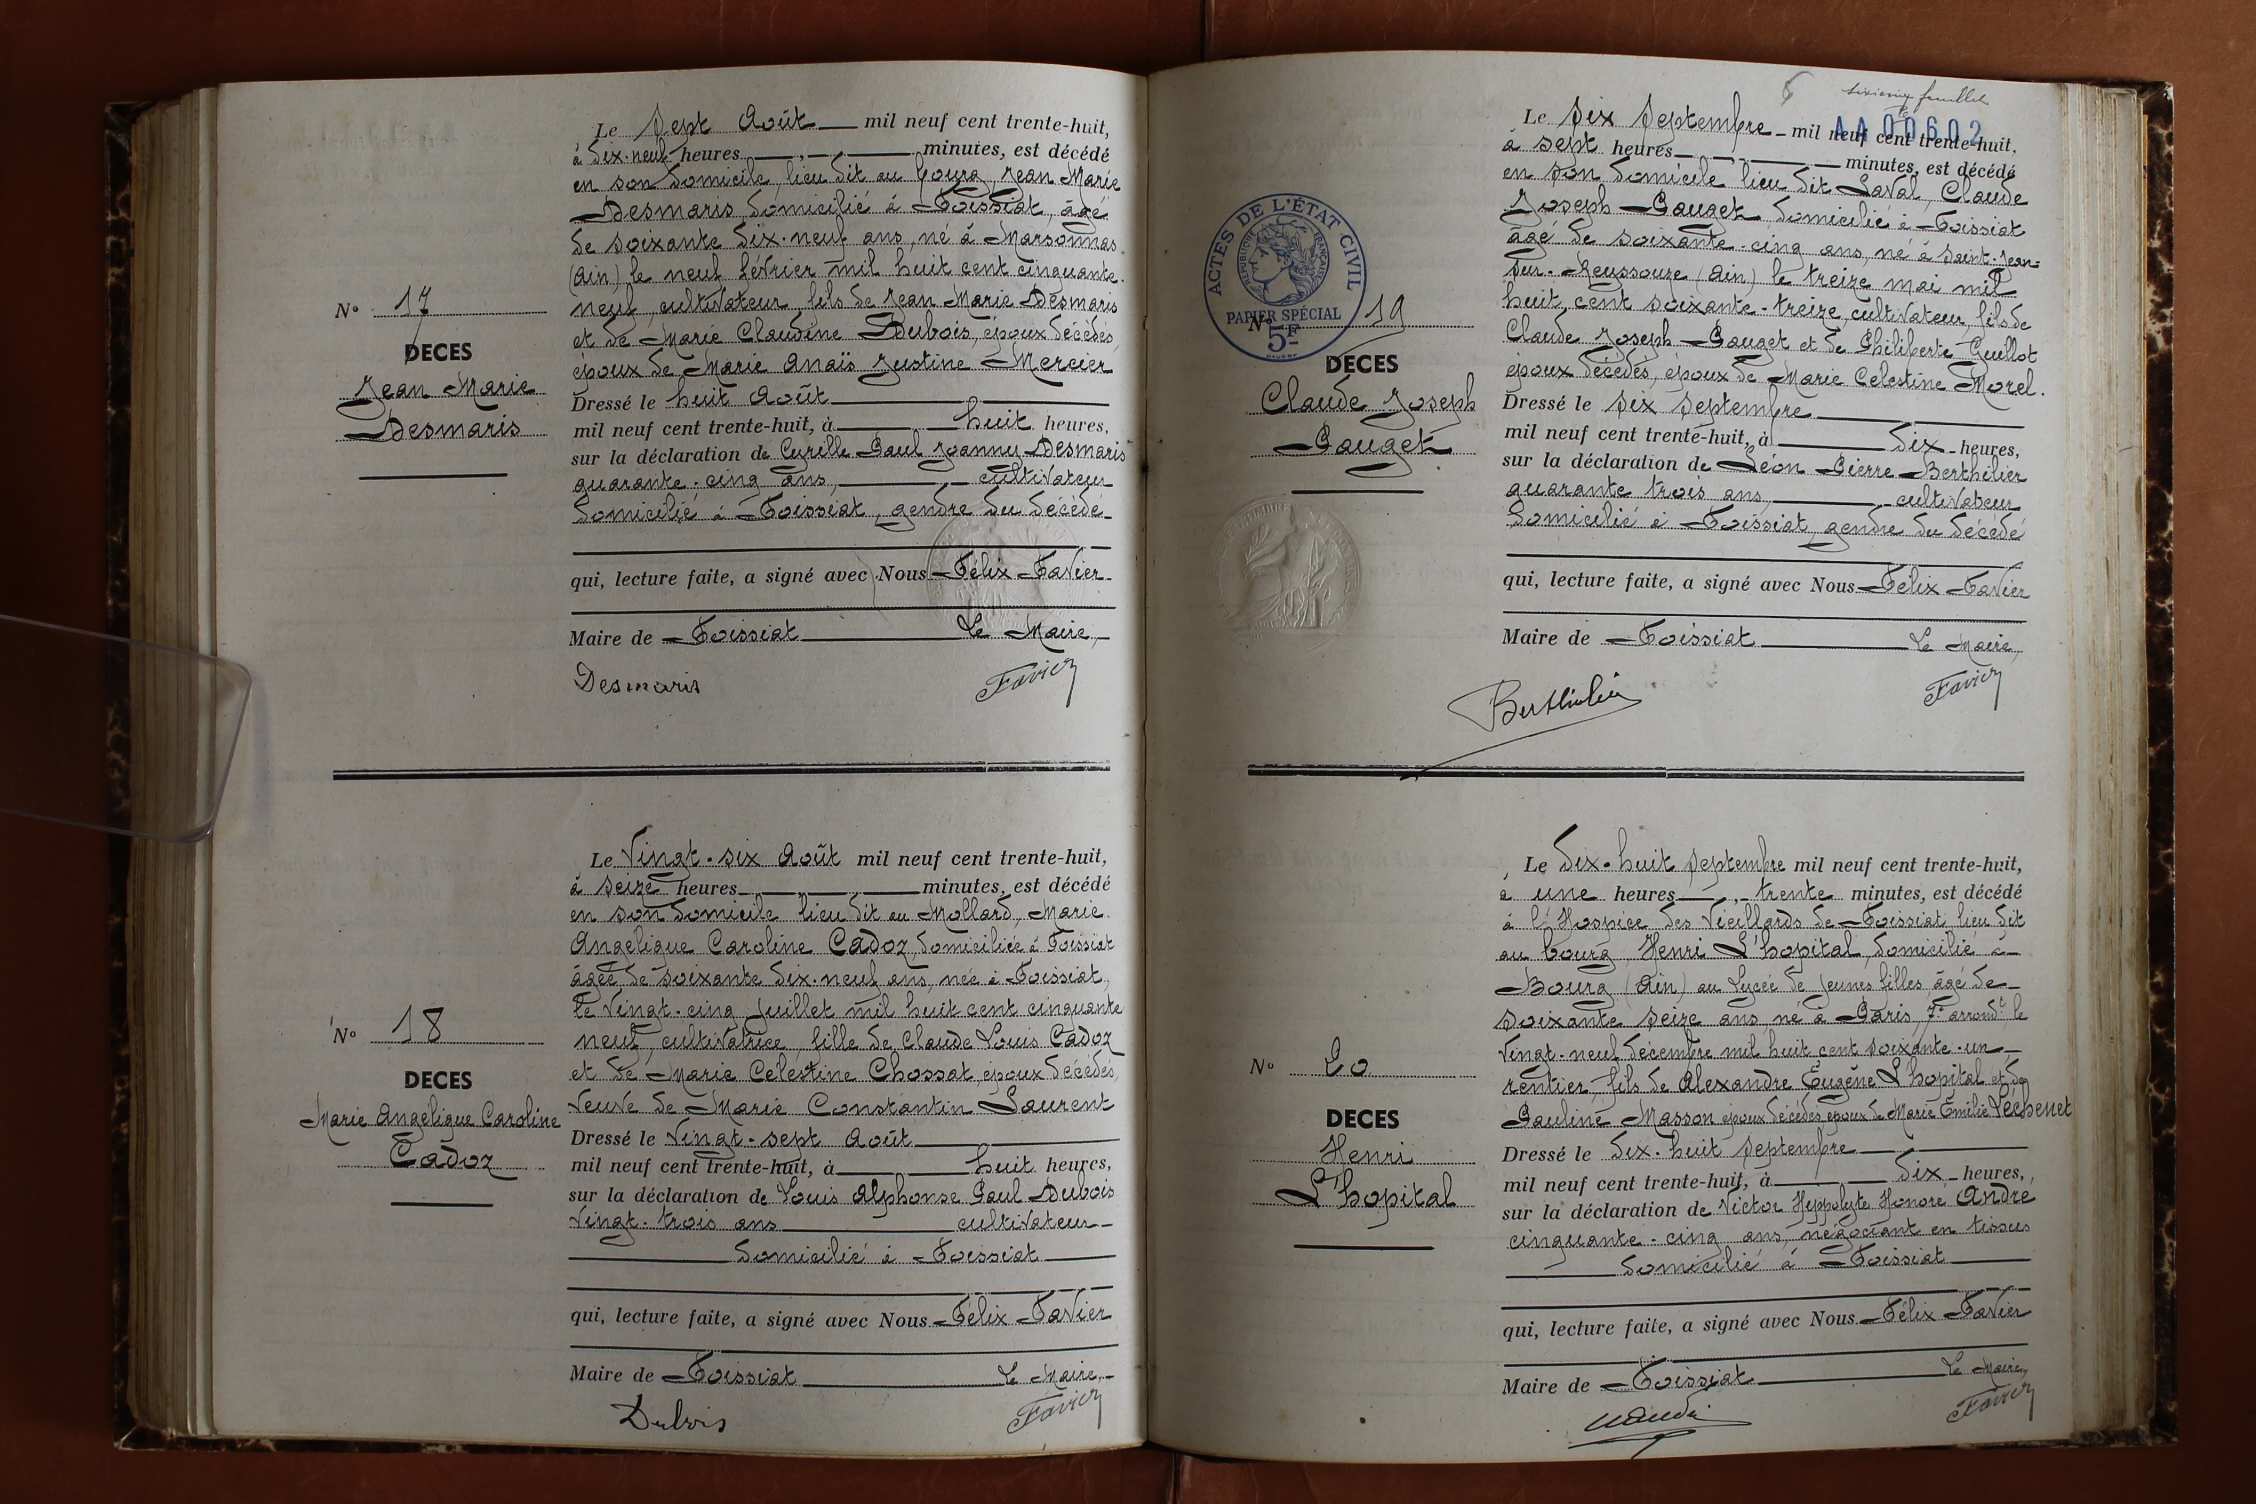 Le sept Août mil neuf cent trente-huit,
à dix-neuf heures minutes, est décédé
en son domicile, lieu dit au bourg, Jean Marie
Desmaris, domicilié à Foissiat, âgé
de soixante dix-neuf ans, né à Marsonnas
(Ain) le neuf février mil huit cent cinquante-
neuf, cultivateur, fils de Jean Marie Desmaris
et de Marie Claudine Dubois, époux décédés,
époux de Marie Anaïs Justine Mercier
Dressé le huit Août
mil neuf cent trente-huit, à huit heures,
sur la déclaration de Cyrille Paul Joanny Desmaris
quarante-cinq ans, cultivateur
domicilié à Foissiat, gendre du décédé
qui, lecture faite, a signé avec Nous Félix Favier
Maire de Foissiat Le Maire,
Desmaris Favier
N° 17
DECES
Jean Marie
Desmaris
Le Vingt-six Août mil neuf cent trente-huit,
à seize heures minutes, est décédé
en son domicile lieu dit au Mollard, Marie
Angélique Caroline Cadoz, domiciliée à Foissiat
âgée de soixante dix-neuf ans, née à Foissiat,
le vingt-cinq juillet mil huit cent cinquante
neuf, cultivatrice, fille de Claude Louis Cadoz
et de Marie Célestine Chossat, époux décédés,
Veuve de Marie Constantin Laurent
Dressé le Vingt-sept Août
mil neuf cent trente-huit, à huit heures,
sur la déclaration de Louis Alphonse Paul Dubois
Vingt-trois ans cultivateur
domicilié à Foissiat
qui, lecture faite, a signé avec Nous Félix Favier
Maire de Foissiat Le Maire,
Dubois Favier
N° 18
DECES
Marie Angélique Caroline
Cadoz
6 sixième feuillet
AA 00602
Le six septembre mil neuf cent trente-huit,
à sept heures minutes, est décédé
en son domicile lieu dit Laval, Claude
Joseph Pauget domicilié à Foissiat
âgé de soixante-cinq ans, né à Saint-Jean-
sur-Reyssouze (Ain) le treize mai mil
huit cent soixante-treize, cultivateur, fils de
Claude Joseph Pauget et de Philiberte Guillot
époux décédés, époux de Marie Célestine Morel.
Dressé le six septembre
mil neuf cent trente-huit, à dix heures,
sur la déclaration de Léon Pierre Berthelier
quarante trois ans, cultivateur
domicilié à Foissiat, gendre du décédé
qui, lecture faite, a signé avec Nous Félix Favier
Maire de Foissiat Le Maire,
Favier
ACTES DE L'ÉTAT CIVIL
RÉPUBLIQUE FRANÇAISE
PAPIER SPÉCIAL
5F
N° 19
DECES
Claude Joseph
Pauget
Le dix-huit septembre mil neuf cent trente-huit,
à une heures, trente minutes, est décédé
à l'Hospice des Vieillards de Foissiat, lieu dit
au bourg, Henri L'hopital, domicilié à
Bourg (Ain) au Lycée de Jeunes filles, âgé de
soixante seize ans, né à Paris, 7e arrondt le
vingt-neuf décembre mil huit cent soixante-un,
rentier, fils de Alexandre Eugène L'hopital et de
Pauline Masson époux décédés, époux de Marie Emilie Péchenet
Dressé le dix-huit septembre
mil neuf cent trente-huit, à dix heures,
sur la déclaration de Victor Hyppolyte Honoré André
cinquante-cinq ans, négociant en tissus
domicilié à Foissiat
qui, lecture faite, a signé avec Nous Félix Favier
Maire de Foissiat Le Maire,
Favier
N° 20
DECES
Henri
L'hopital